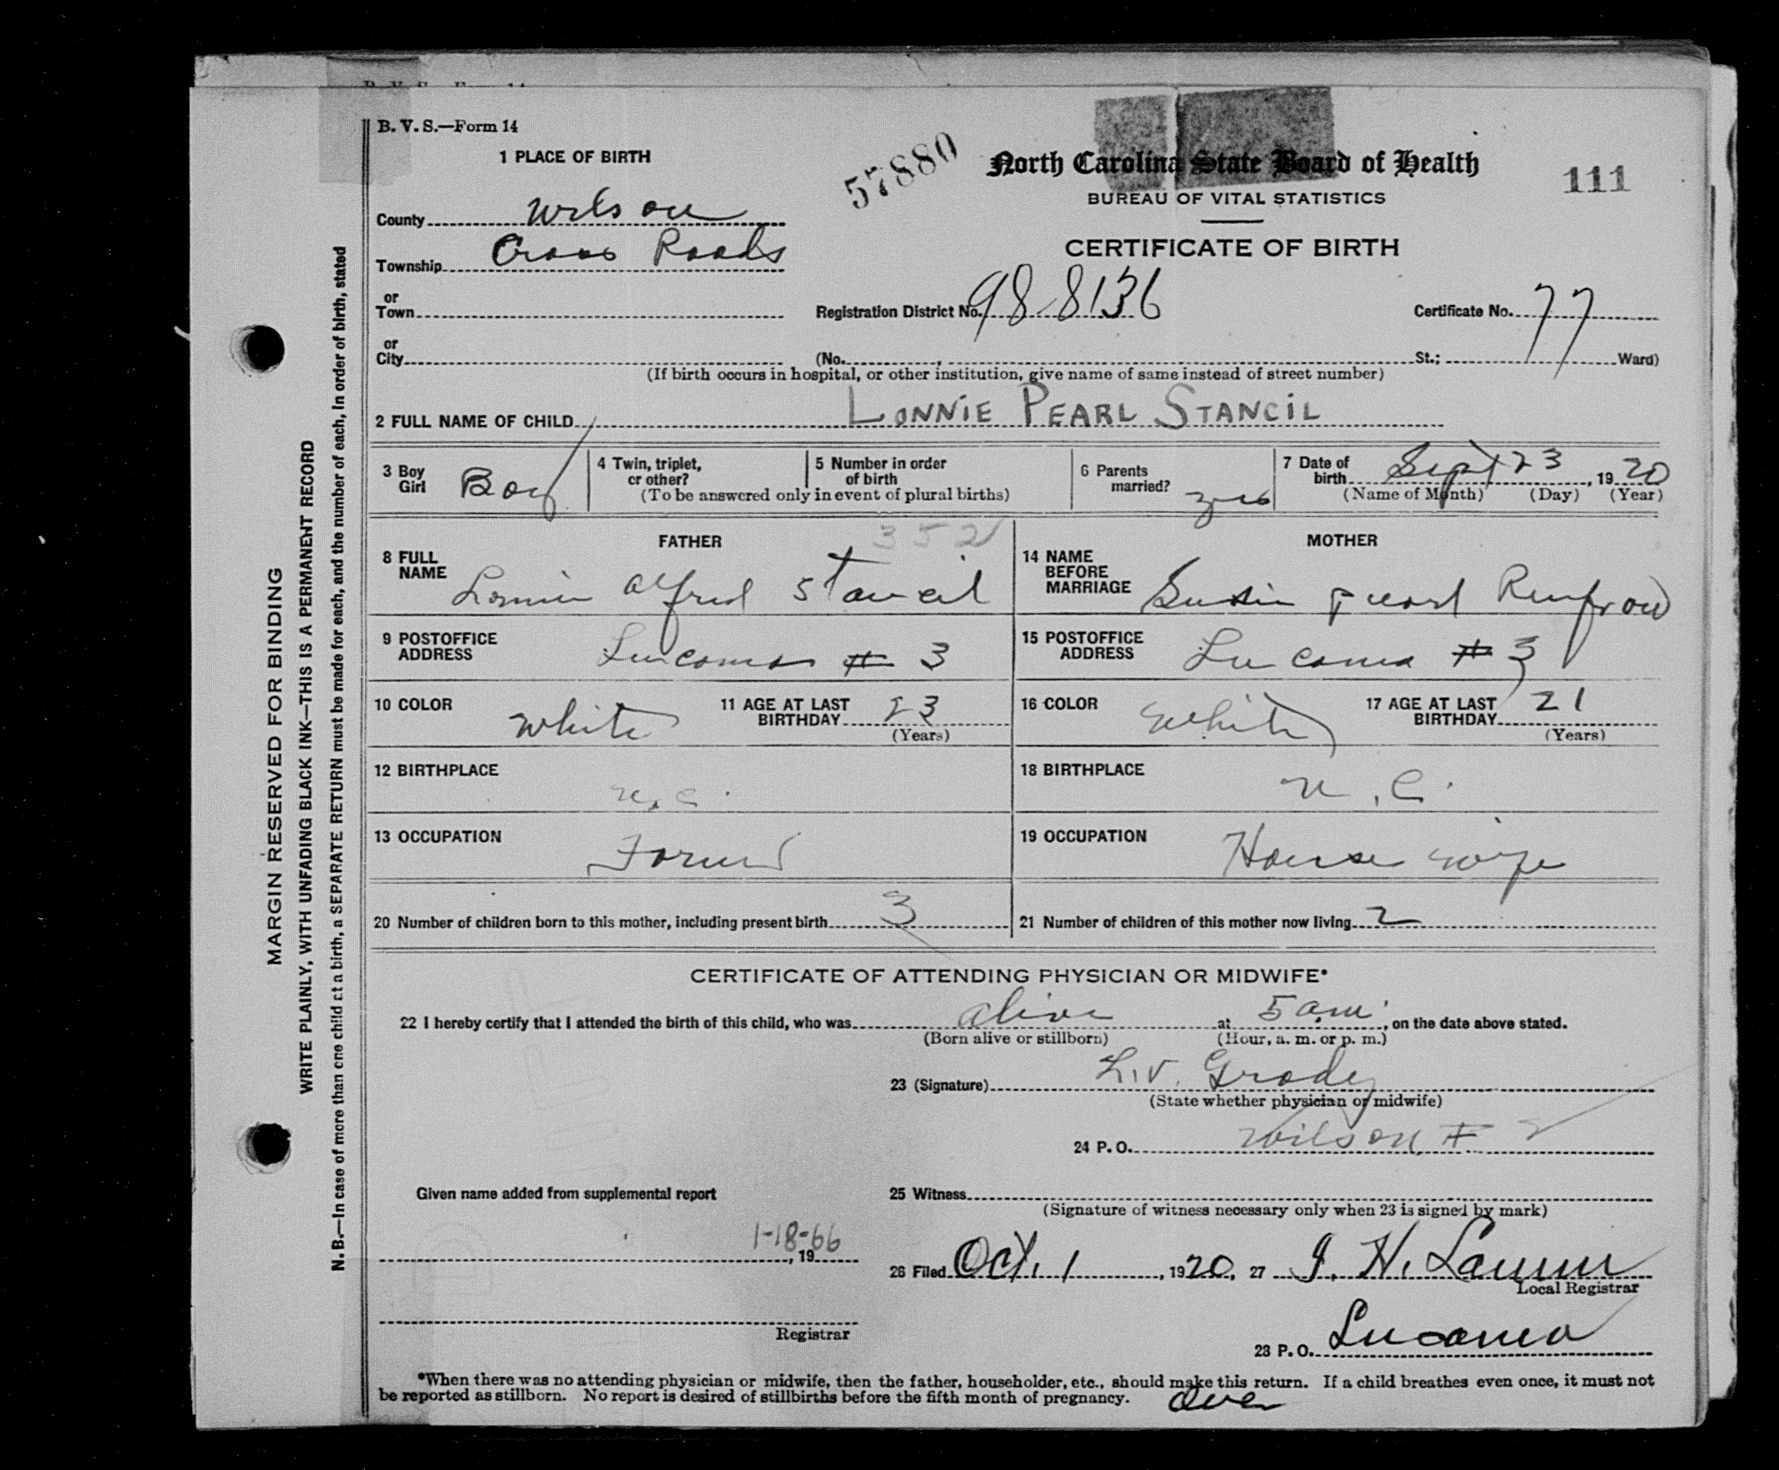 B. V. S.—Form 14
1 PLACE OF BIRTH
57880
North Carolina State Board of Health
111
BUREAU OF VITAL STATISTICS
CERTIFICATE OF BIRTH
County Wilson
Township Cross Roads
or
Town
Registration District No. 98-8136
Certificate No. 77
or
City (No. , St.; Ward)
(If birth occurs in hospital, or other institution, give name of same instead of street number)
2 FULL NAME OF CHILD LONNIE PEARL STANCIL
3 Boy Girl Boy
4 Twin, triplet, or other?
5 Number in order of birth
(To be answered only in event of plural births)
6 Parents married? yes
7 Date of birth Sept 23, 1920
(Name of Month) (Day) (Year)
FATHER
352
8 FULL NAME Lonnie Alfred Stancil
MOTHER
14 NAME BEFORE MARRIAGE Susie Pearl Renfrow
9 POSTOFFICE ADDRESS Lucama # 3
15 POSTOFFICE ADDRESS Lucama # 3
10 COLOR White
11 AGE AT LAST BIRTHDAY 23
(Years)
16 COLOR White
17 AGE AT LAST BIRTHDAY 21
(Years)
12 BIRTHPLACE N.C.
18 BIRTHPLACE N.C.
13 OCCUPATION Farmer
19 OCCUPATION House wife
20 Number of children born to this mother, including present birth 3
21 Number of children of this mother now living 2
CERTIFICATE OF ATTENDING PHYSICIAN OR MIDWIFE*
22 I hereby certify that I attended the birth of this child, who was alive at 5 am, on the date above stated.
(Born alive or stillborn) (Hour, a. m. or p. m.)
23 (Signature) L.V. Grady
(State whether physician or midwife)
24 P. O. Wilson, # 2
Given name added from supplemental report
25 Witness
(Signature of witness necessary only when 23 is signed by mark)
1-18-66
, 19
26 Filed Oct. 1, 1920, 27 J. H. Lamm
Local Registrar
Registrar
28 P. O. Lucama
*When there was no attending physician or midwife, then the father, householder, etc., should make this return. If a child breathes even once, it must not
be reported as stillborn. No report is desired of stillbirths before the fifth month of pregnancy.
Over
MARGIN RESERVED FOR BINDING
WRITE PLAINLY, WITH UNFADING BLACK INK—THIS IS A PERMANENT RECORD
N. B.—In case of more than one child at a birth, a SEPARATE RETURN must be made for each, and the number of each, in order of birth, stated